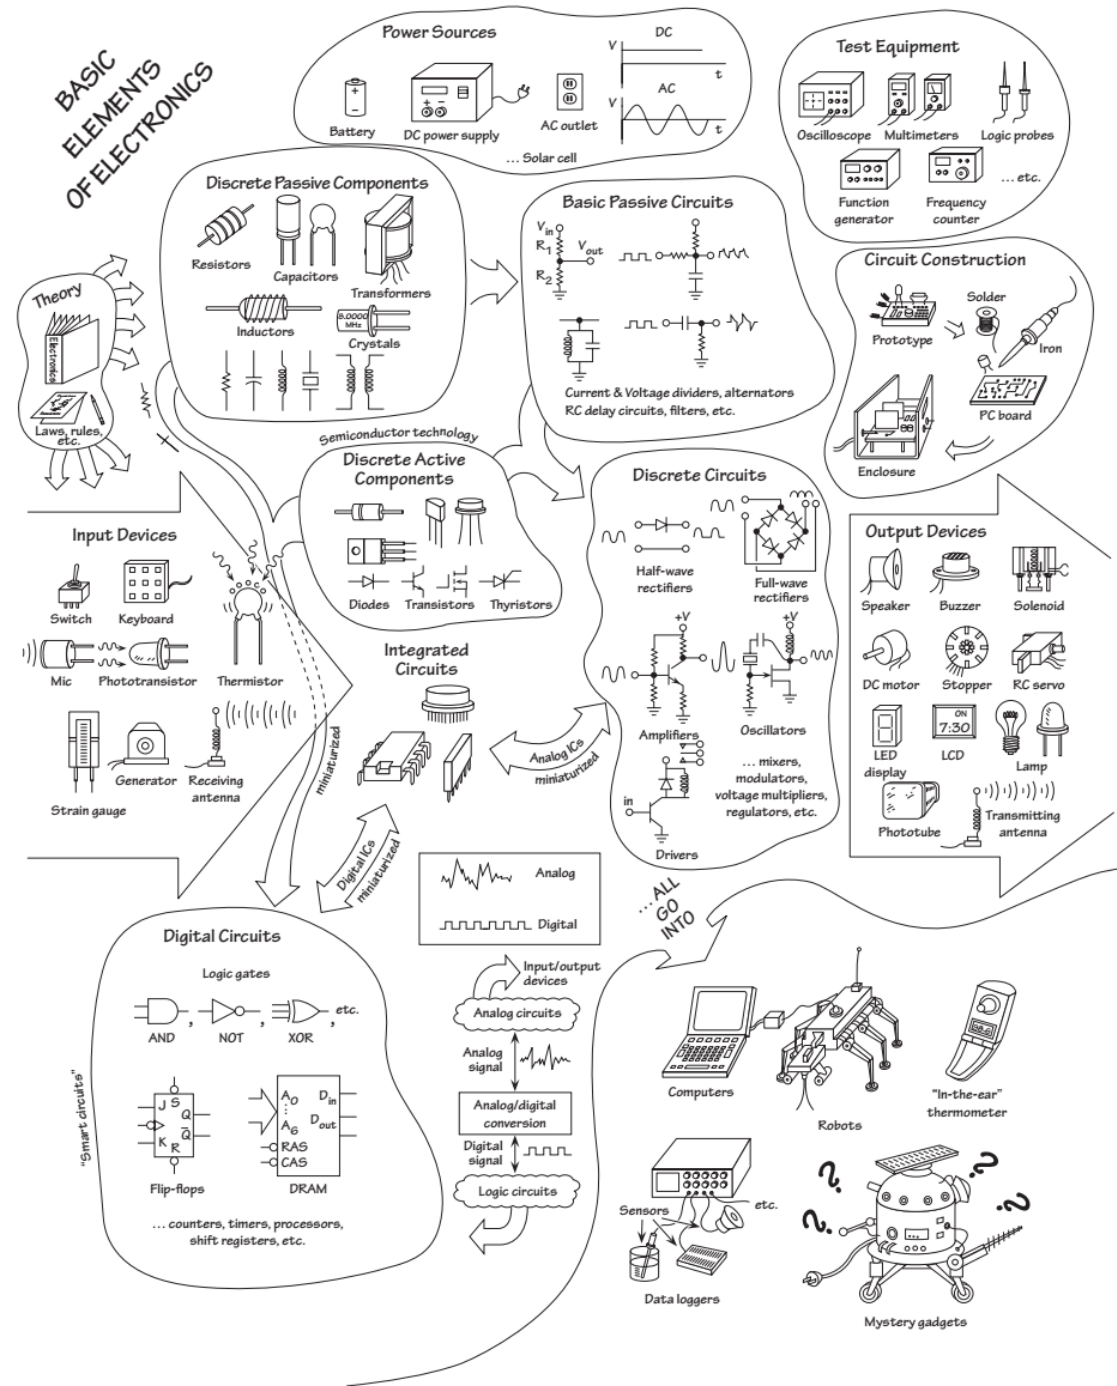 BASIC
ELEMENTS
OF ELECTRONICS
Power Sources
Battery
DC power supply
AC outlet
V
DC
t
AC
V
t
... Solar cell
Test Equipment
Oscilloscope
Multimeters
Logic probes
Function
generator
Frequency
counter
... etc.
Discrete Passive Components
Resistors
Capacitors
Transformers
Inductors
8.0000
MHz
Crystals
Basic Passive Circuits
Vin
R1
Vout
R2
Current & Voltage dividers, alternators
RC delay circuits, filters, etc.
Circuit Construction
Prototype
Solder
Iron
PC board
Enclosure
Theory
Electronics
Laws, rules,
etc.
Semiconductor technology
Discrete Active
Components
Diodes
Transistors
Thyristors
Discrete Circuits
Half-wave
rectifiers
Full-wave
rectifiers
+V
Amplifiers
+V
Oscillators
in
Drivers
... mixers,
modulators,
voltage multipliers,
regulators, etc.
Input Devices
Switch
Keyboard
Mic
Phototransistor
Thermistor
Strain gauge
Generator
Receiving
antenna
Integrated
Circuits
miniaturized
Analog ICs
miniaturized
Digital ICs
miniaturized
Output Devices
Speaker
Buzzer
Solenoid
DC motor
Stopper
RC servo
LED
display
ON
7:30
LCD
Lamp
Phototube
Transmitting
antenna
Analog
Digital
... ALL
GO
INTO
Digital Circuits
Logic gates
AND
,
NOT
,
XOR
, etc.
"Smart circuits"
J
S
Q
K
R
Q̅
Flip-flops
A0
⋮
A6
RAS
CAS
Din
Dout
DRAM
... counters, timers, processors,
shift registers, etc.
Input/output
devices
Analog circuits
Analog
signal
Analog/digital
conversion
Digital
signal
Logic circuits
Computers
Robots
"In-the-ear"
thermometer
Sensors
etc.
Data loggers
?
?
?
?
Mystery gadgets